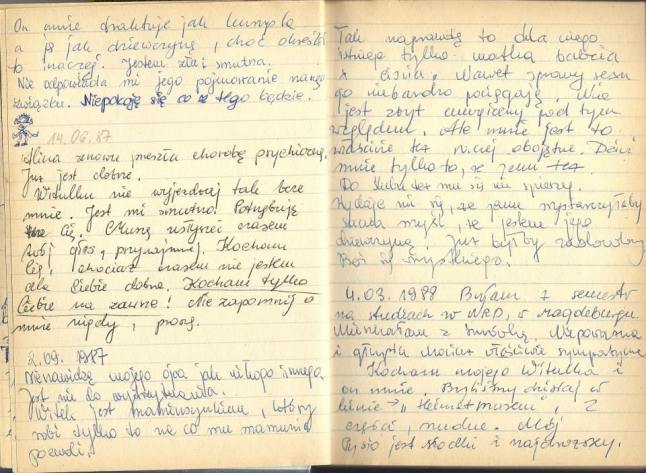 On mnie traktuje jak kumpla
a ja jak dziewczynę, choć określi
to inaczej. Jestem zła i smutna.
Nie odpowiada mi jego pojmowanie naszego
związku. Niepokoję się co z tego będzie.
14.06.87
Alina znowu przeszła chorobę psychiczną.
Już jest dobrze.
Witulku nie wyjeżdżaj tak beze
mnie. Jest mi smutno. Potrzebuję
Cię. Muszę usłyszeć czasem
Twój głos, przynajmniej. Kocham
Cię! chociaż czasem nie jestem
dla Ciebie dobra. Kocham tylko
Ciebie na zawsze! Nie zapomnij o
mnie nigdy, proszę.
2.09.1987
Nienawidzę mojego ojca jak nikogo innego.
Jest nie do wytrzymania.
Witek jest maminsynkiem, który
robi tylko to na co mu mamunia
pozwoli.
Tak naprawdę to dla niego
istnieje tylko matka babcia
i. Nawet sprawy sexu
go niebardzo pociągają. Nie
jest zbyt energiczny pod tym
względem. Ale mnie jest to
właściwie też raczej obojętne. Dziwi
mnie tylko to, że jemu też.
Do ślubu też mu się nie spieszy.
Wydaje mi się, że jemu wystarczyłaby
sama myśl, że jestem jego
dziewczyną. Już byłby zadowolony
Boś z wszystkiego.
4.03.1988 Byłam 1 semestr
na studiach w NRD, w Magdeburgu.
Mieszkałam z. Niepoważna
i głupia choć właściwie sympatyczna
Kocham mojego Witulka i
on mnie. Byliśmy dzisiaj w
kinie "Heimatmuseum", 2
część, nudne. Mój
Pysio jest słodki i najdroższy.